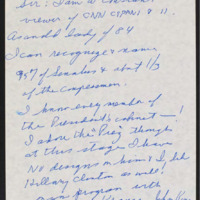 Sir: I am a constant
viewer of CNN CSPAN, & 11.
As an old lady of 84
I can recognize & name
95% of Senators & abt 1/3
of the Congressmen.
I know every member of
the President's cabinet—!
I adore the Prez though
at this stage I have
No designs on him & I did
Hillary Clinton as well!
program with